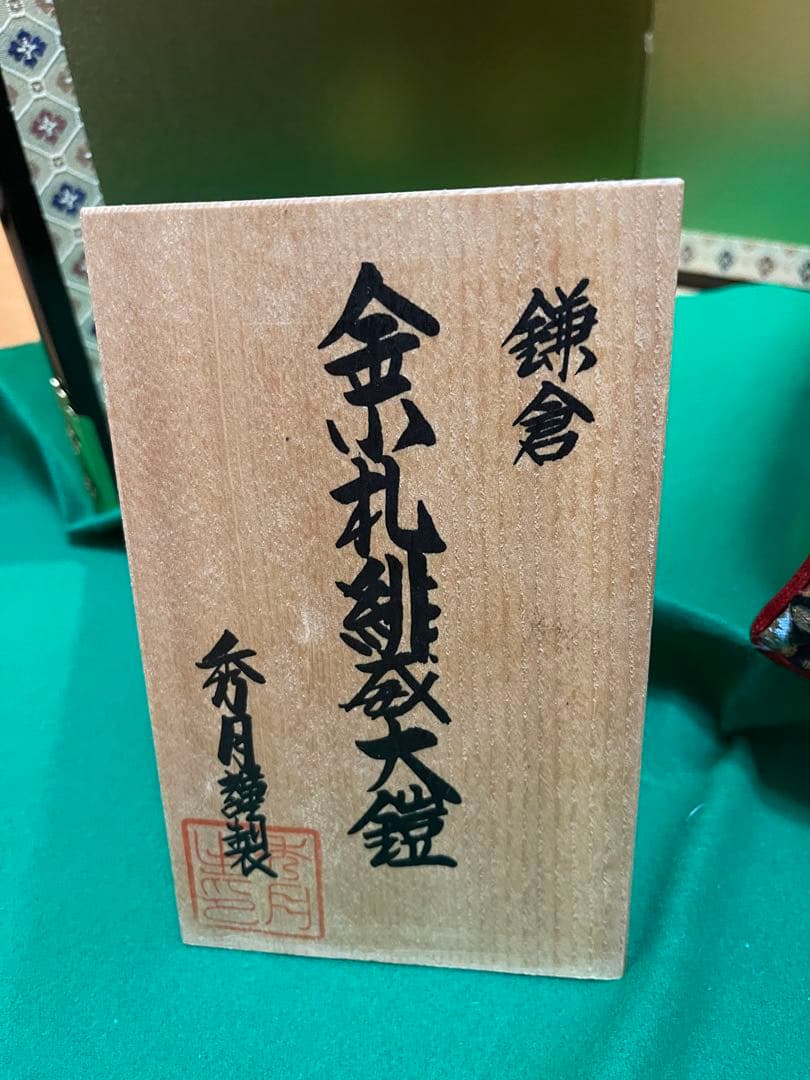 鎌倉
金小札緋威大鎧
秀月謹製